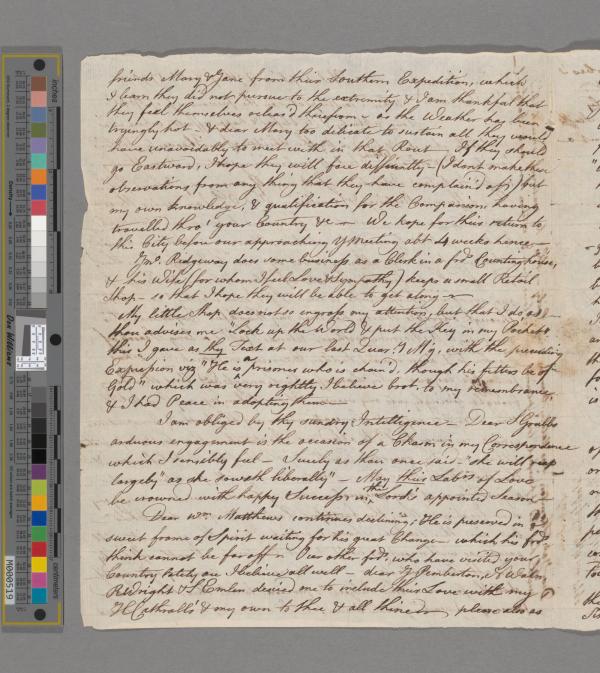 friends Mary & Jane from their Southern Expedition, which
I learn they did not pursue to the extremity & I am thankful that
they feel themselves releas'd therefrom - as the Weather has been
tryingly hot - & dear Mary too delicate to sustain all they would
have unavoidably to meet with in that Rout - If they should
go Eastward, I hope they will fare differently - (I dont make these
observations from any thing that they have complain'd of) but
my own knowledge, & qualification for the Comparison having
travelled thro' your Country &c - We hope for their return to
this City before our approaching YMeeting abt 4 weeks hence -
Jno. Ridgeway does some business as a Clerk in a frds Counting house,
& his Wife (for whom I feel Love & Sympathy) keeps a small Retail
Shop - so that I hope they will be able to get along -
My little Shop does not so engross my attention, but that I do as
thou advises me "Lock up the World & put the Key in my Pocket"
this I gave as thy Text at our last Quar:y Mg, with the preceding
Expression viz "He is a prisoner who is chain'd, though his fetters be of
Gold" which was very rightly I believe brot. to my remembrance,
& I had Peace in adopting them -
I am obliged by thy sundry Intelligence - Dear S Grubbs
arduous engagement is the occasion of a Chasm in my Correspondence
which I sensibly feel - Surely as thou once said - "she will reap
largely" as she soweth liberally" - May this Labor of Love
be crowned with happy Success in the Lord's appointed Season -
Dear Wm. Matthews continues declining; He is preserved in a
sweet frame of Spirit waiting for his great Change - which his frds
think cannot be far off - Our other frds, who have visited your
Country lately are I believe all well - dear J Pemberton, N Waln
R Wright & S Emlen desired me to include their Love with my
H Cathralls & my own to thee & all thine - please also as
Don Williams
inches
centimeters
M000519